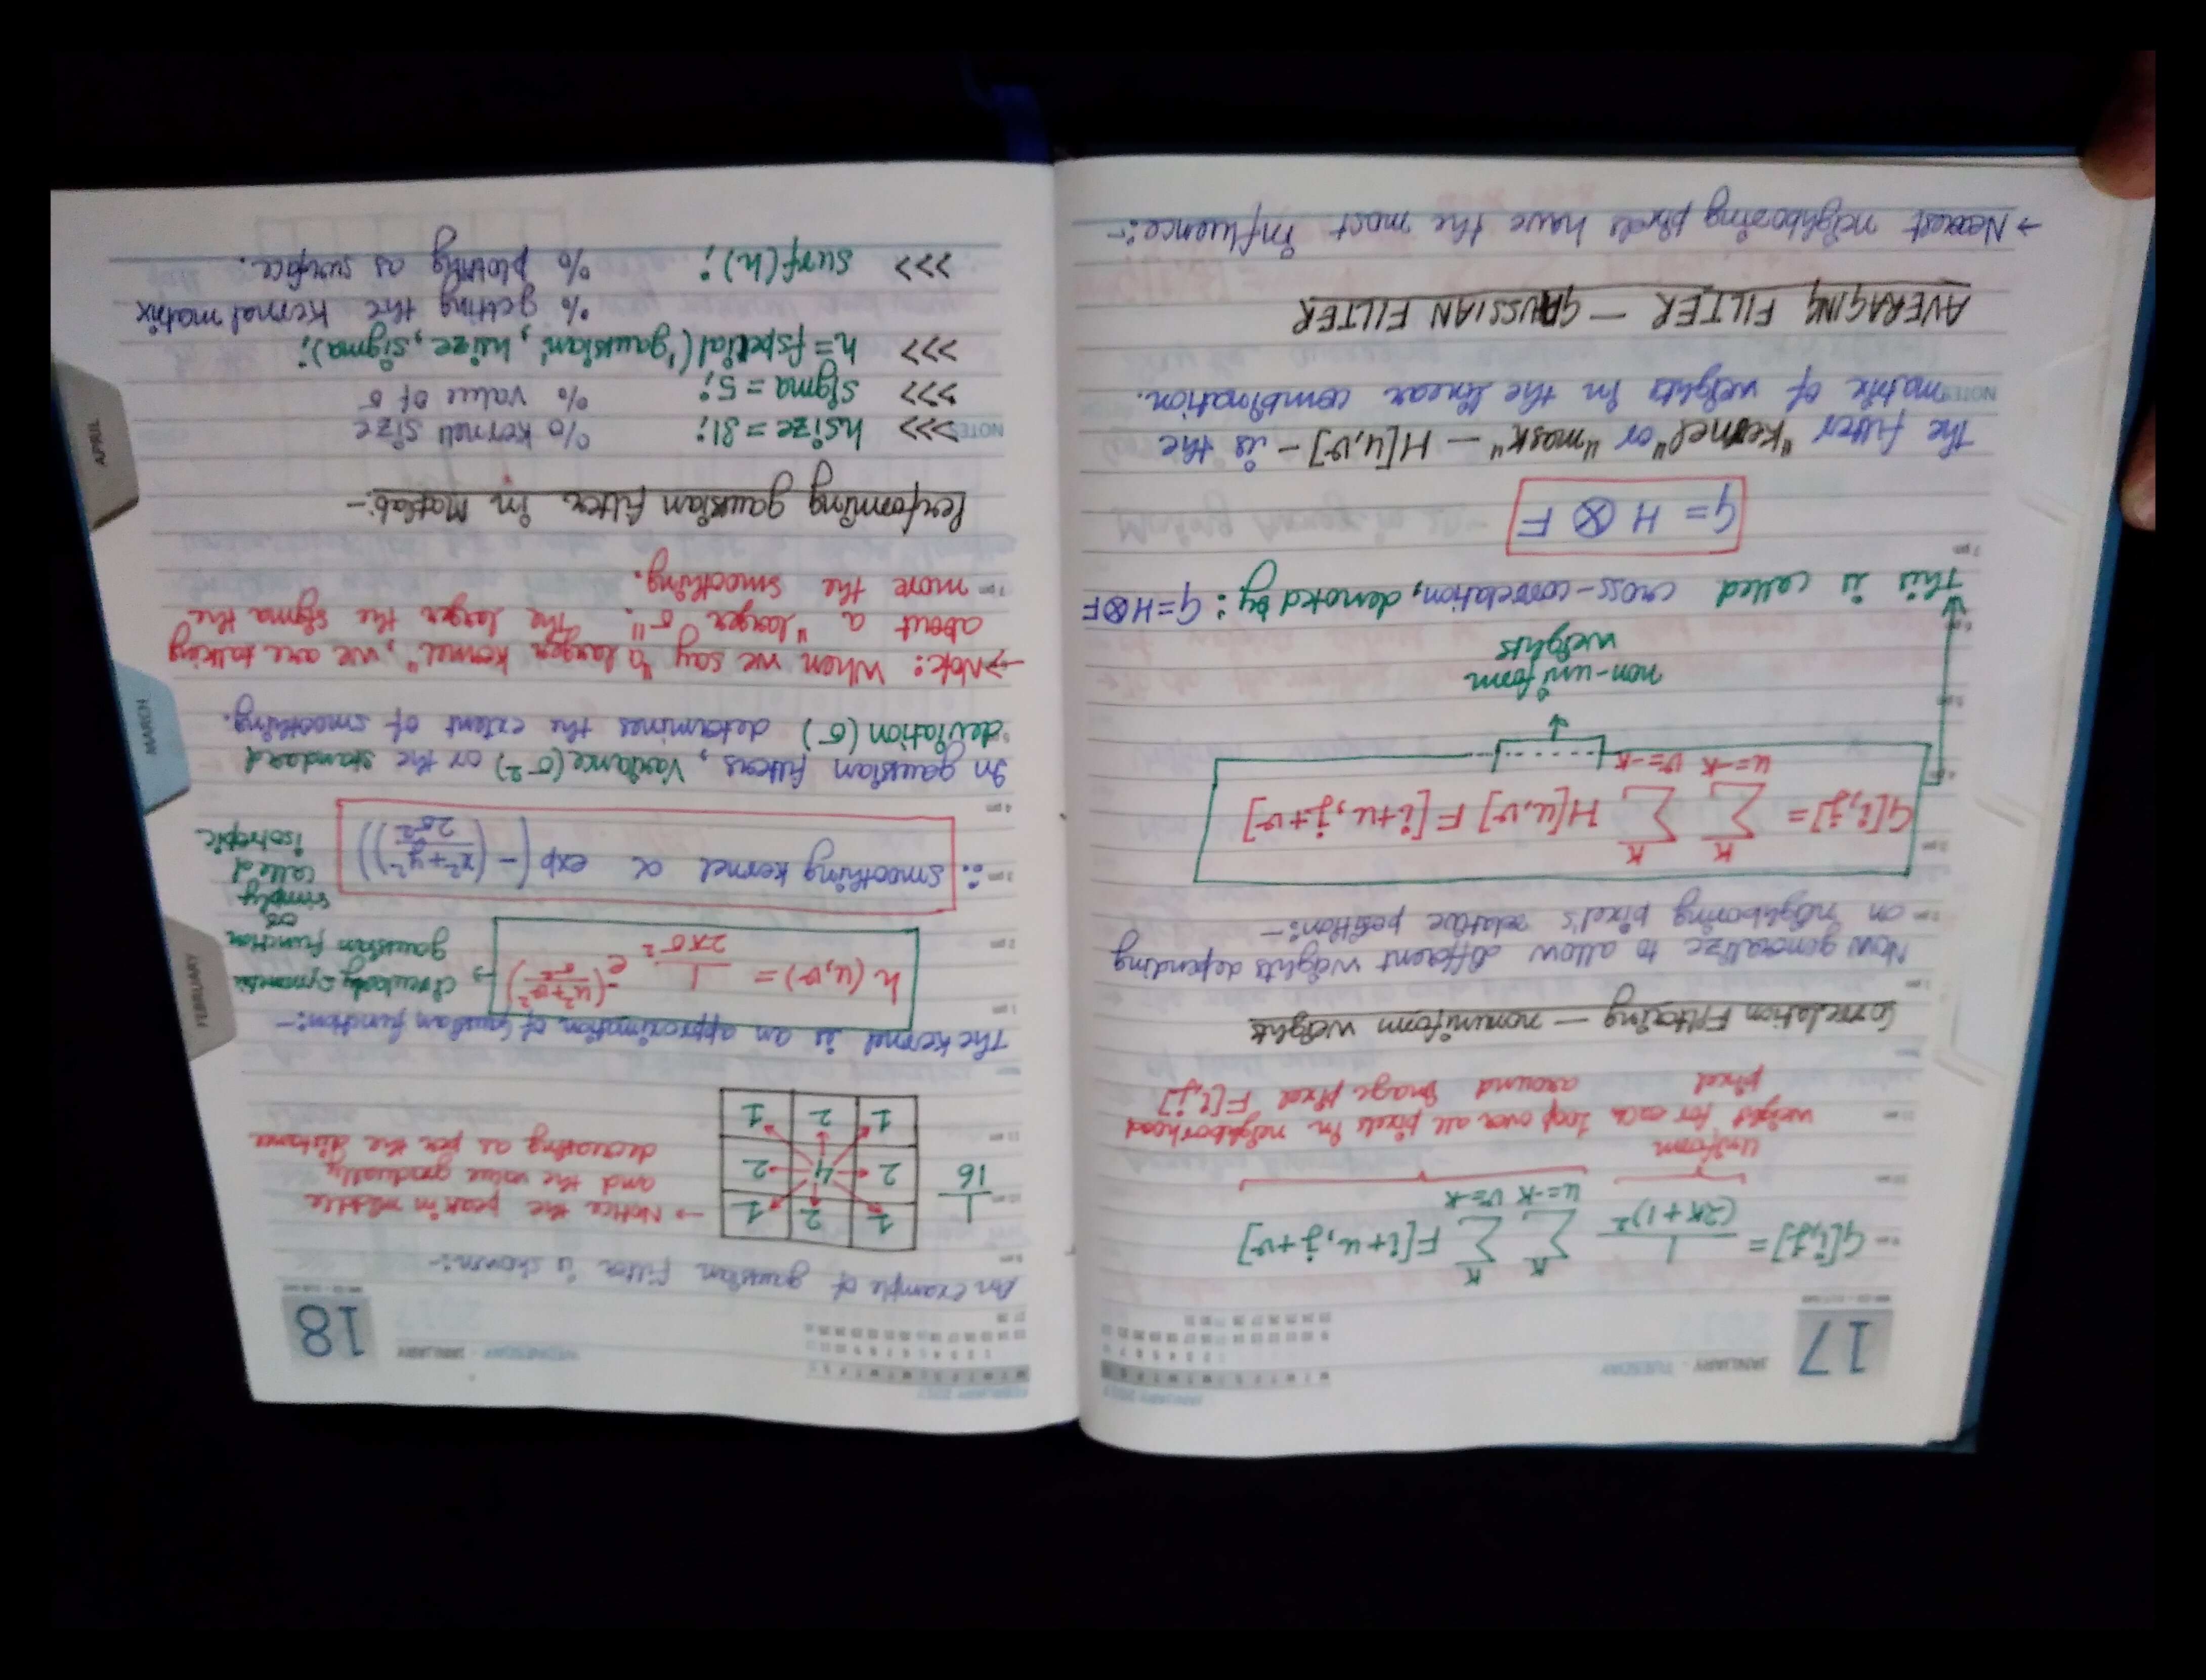 17
JANUARY · TUESDAY
G[i,j] = 1/(2K+1)² Σ(u=-K to K) Σ(v=-K to K) F[i+u, j+v]
Uniform
weight for each
pixel
Loop over all pixels in neighborhood
around image pixel F[i,j]
Correlation Filtering — nonuniform weights
Now generalize to allow different weights depending
on neighboring pixel's relative position:-
G[i,j] = Σ(u=-K to K) Σ(v=-K to K) H[u,v] F[i+u, j+v]
non-uniform
weights
This is called cross-correlation, denoted by: G=H⊗F
G = H ⊗ F
The filter "kernel" or "mask" — H[u,v] - is the
matrix of weights in the linear combination.
NOTES
AVERAGING FILTER — GAUSSIAN FILTER
→ Nearest neighboring pixels have the most influence:-
WEDNESDAY · JANUARY
18
An example of gaussian filter is shown:-
1/16
1 2 1
2 4 2
1 2 1
→ Notice the peak in middle
and the value gradually
decreasing as per the distance
The kernel is an approximation of Gaussian function:-
h(u,v) = 1/2πσ² e^-(u²+v²/σ²)
→ circularly symmetric
gaussian function
or
simply
called
isotropic
∴ smoothing kernel ∝ exp(-(x²+y²/2σ²))
In gaussian filters, Variance (σ²) or the standard
deviation (σ) determines the extent of smoothing.
→ Note: When we say "a larger kernel", we are talking
about a "larger σ". The larger the sigma the
more the smoothing.
Performing gaussian filter in Matlab:-
NOTES
>>> hsize = 31; % kernell size
>>> sigma = 5; % value of σ
>>> h=fspecial('gaussian', hsize, sigma);
% getting the kernal matrix
>>> surf(h); % plotting as surface.
FEBRUARY
MARCH
APRIL